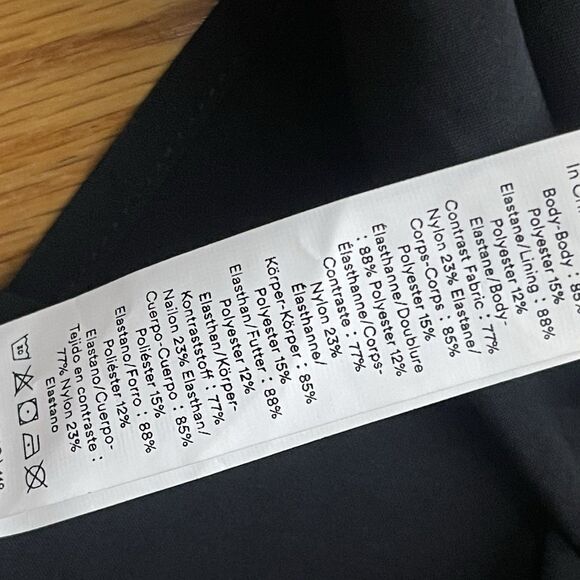 Body-Body : 85%
Polyester 15%
Elastane/Lining : 88%
Polyester 12%
Elastane/Body-
Contrast Fabric : 77%
Nylon 23% Elastane/
Corps-Corps : 85%
Polyester 15%
Élasthanne/Doublure
: 88% Polyester 12%
Élasthanne/Corps-
Contraste : 77%
Nylon 23%
Élasthanne/
Körper-Körper : 85%
Polyester 15%
Elasthan/Futter : 88%
Polyester 12%
Elasthan/Körper-
Kontraststoff : 77%
Nailon 23% Elasthan/
Cuerpo-Cuerpo : 85%
Poliéster 15%
Elastano/Forro : 88%
Poliéster 12%
Elastano/Cuerpo-
Tejido en contraste :
77% Nylon 23%
Elastano